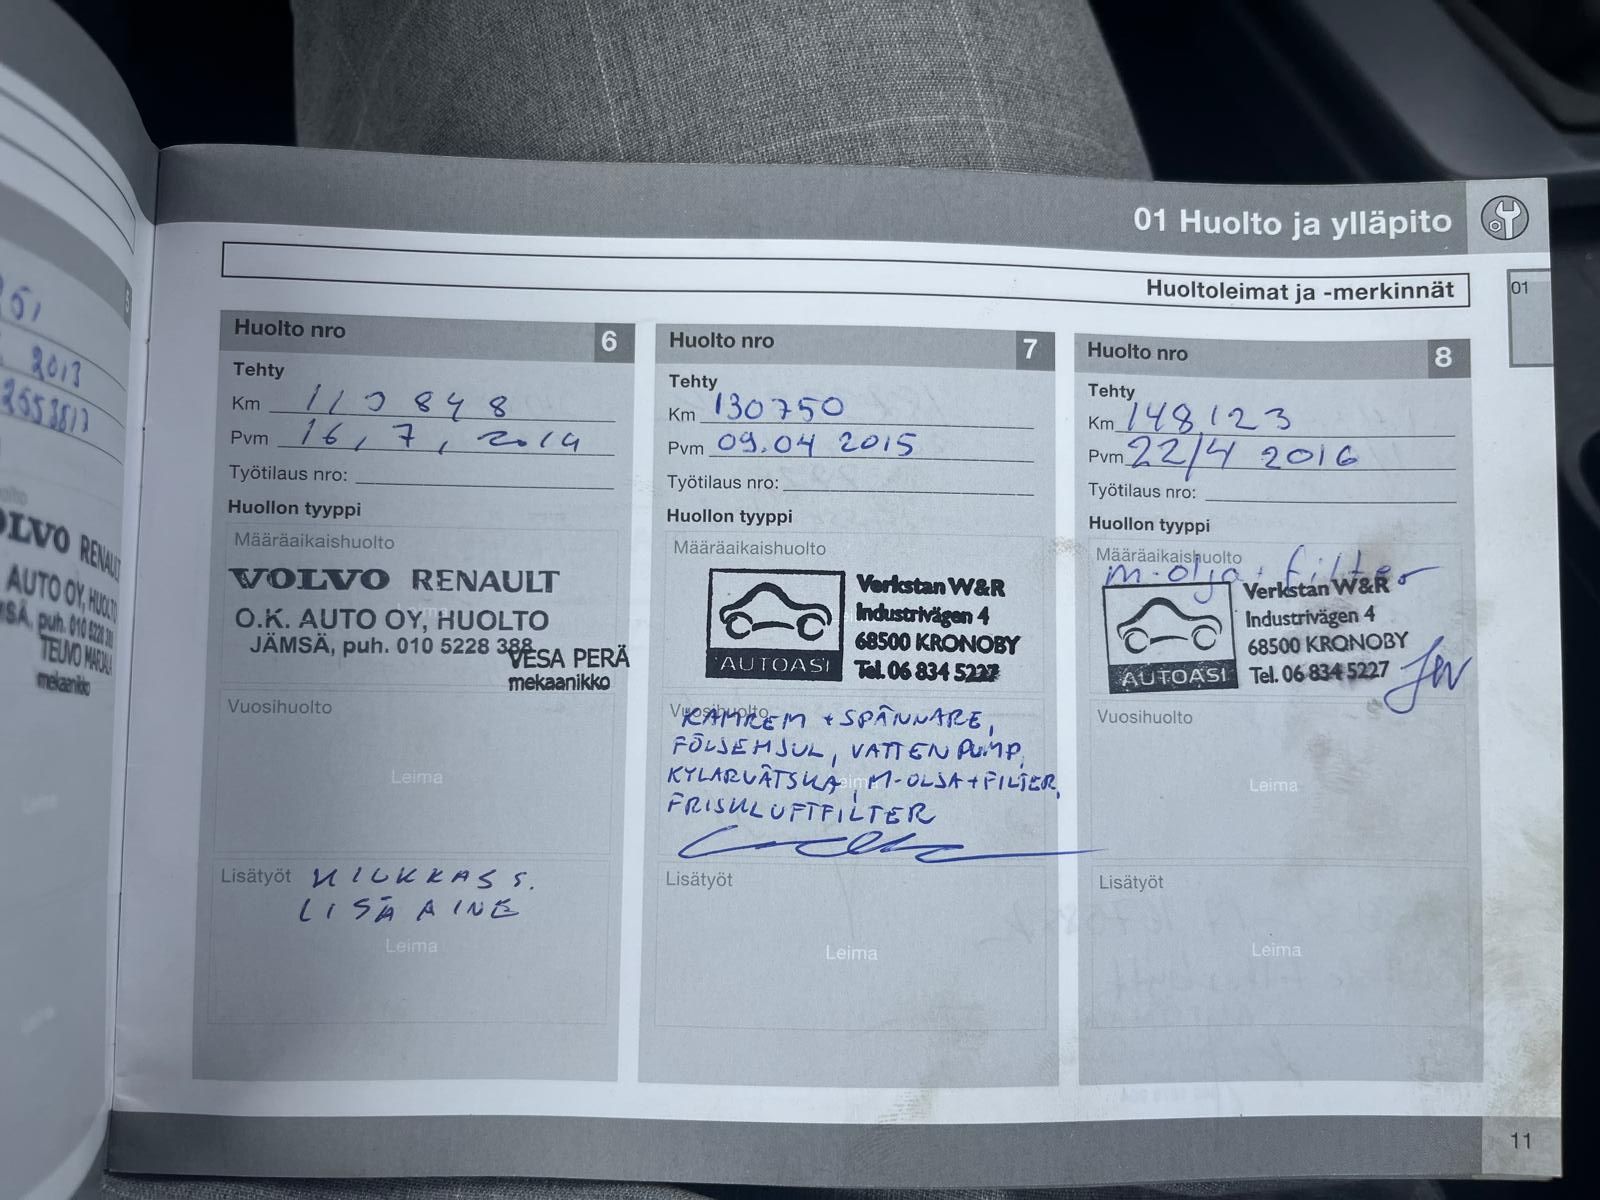 01 Huolto ja ylläpito
Huoltoleimat ja -merkinnät
01
5
2013
OLVO RENAULT
AUTO OY, HUOLTO
puh. 010 5228 388
TEUVO
mekaanikko
Huolto nro 6
Tehty
Km 113 848
Pvm 16, 7, 2014
Työtilaus nro:
Huollon tyyppi
Määräaikaishuolto
VOLVO RENAULT
O.K. AUTO OY, HUOLTO
JÄMSÄ, puh. 010 5228 388
VESA PERÄ
mekaanikko
Vuosihuolto
Leima
Lisätyöt
LISÄAINE
Leima
Huolto nro 7
Tehty
Km 130750
Pvm 09.04 2015
Työtilaus nro:
Huollon tyyppi
Määräaikaishuolto
AUTOASI
Verkstan W&R
Industrivägen 4
68500 KRONOBY
Tel. 06 834 5227
Vuosihuolto
KAMREM + SPÄNNARE,
FÖLJEHJUL, VATTENPUMP,
KYLARVÄTSKA, M-OLJA+FILTER,
FRISKLUFTFILTER
Leima
Lisätyöt
Leima
Huolto nro 8
Tehty
Km 148123
Pvm 22/4 2016
Työtilaus nro:
Huollon tyyppi
Määräaikaishuolto
m-olja + filter
AUTOASI
Verkstan W&R
Industrivägen 4
68500 KRONOBY
Tel. 06 834 5227
Vuosihuolto
Leima
Lisätyöt
Leima
11